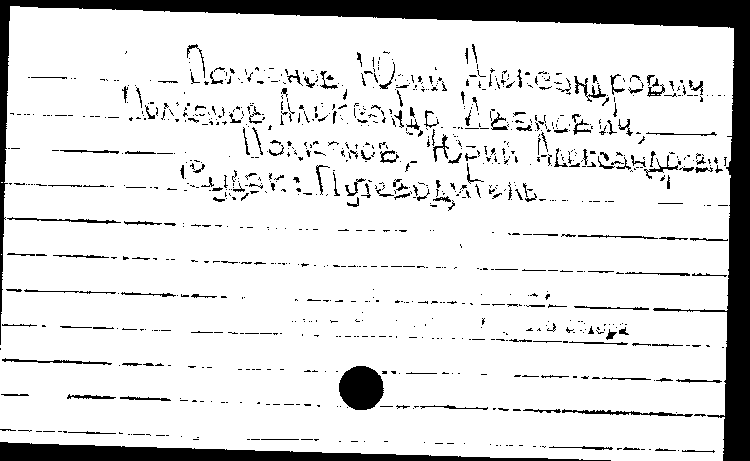 Полканов, Юрий Александрович
Полканов, Александр Иванович,
Полканов, Юрий Александрович
Судак: Путеводитель